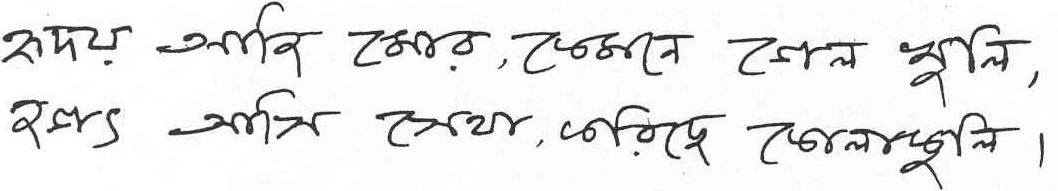 হৃদয় আজি মোর, কেমনে গেল খুলি,
জগৎ আসি সেথা, করিছে কোলাকুলি।